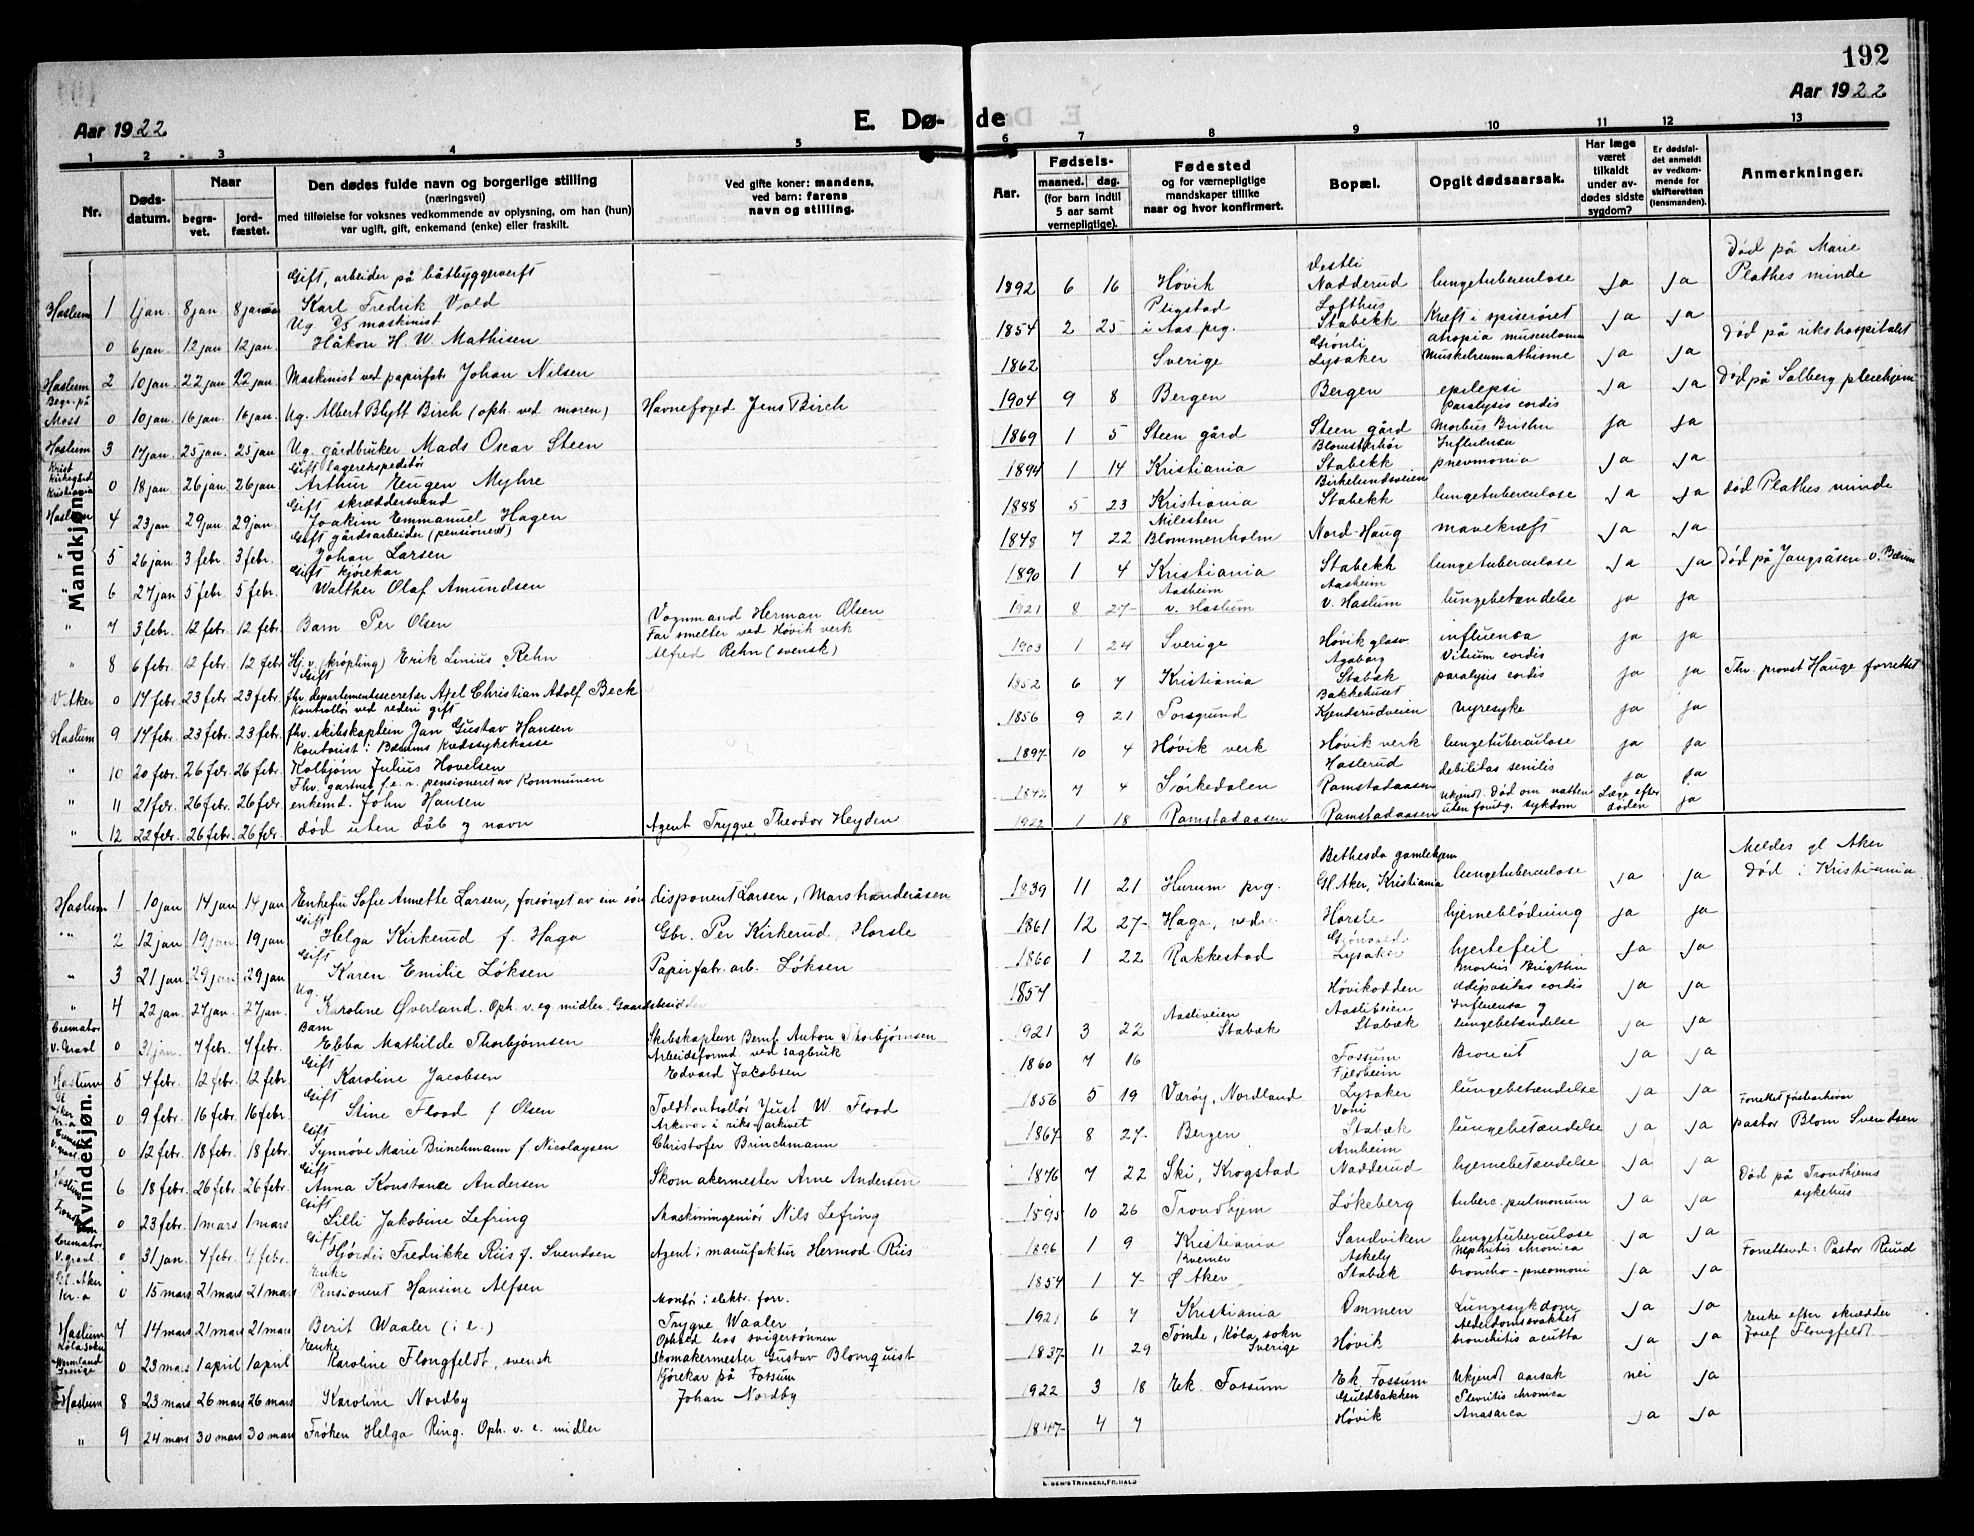 192
Aar 1922
E. Dø-
de
Aar 1922
1 2 3 4 5 6 7 8 9 10 11 12 13
Nr.
Døds-
datum.
Naar
begra-
vet.
jord-
fæstet.
Den dødes fulde navn og borgerlige stilling
(næringsvei)
med tilføielse for voksnes vedkommende av oplysning, om han (hun)
var ugift, gift, enkemand (enke) eller fraskilt.
Ved gifte koner: mandens,
ved barn: farens
navn og stilling.
Aar.
Fødsels-
maaned. dag.
(for barn indtil
5 aar samt
vernepligtige).
Fødested
og for værnepligtige
mandskaper tillike
naar og hvor konfirmert.
Bopæl.
Opgit dødsaarsak.
Har læge
været
tilkaldt
under av-
dødes sidste
sygdom?
Er dødsfal-
det anmeldt
av vedkom-
mende for
skifteretten
(lensmanden).
Anmerkninger.
Mandkjøn.
Haslum 1 1 jan. 8 jan 8 januar Gift, arbeider på båtbyggerverft
Karl Fredrik Vold 1892 6 16 Høvik Vestli
Nadderud lungetuberculose Ja Ja Død på Marie
Plathes minde
0 6 jan. 12 jan 12 jan. Ug. maskinist
Håkon H. W. Mathisen 1854 2 25 i Aas prg. Lofthus
Stabekk Kræft i spiserøret Ja Ja Død på rikshospitalet
Haslum 2 10 jan. 22 jan 22 jan. Maskinist ved papirfabr. Johan Nilsen 1862 Sverige Grønli
Lysaker atropia musculorum
Muskelreumathisme Ja Ja
Begr. på
Moss 0 10 jan. 16 jan. 16 jan. Ug. Albert Blytt Birch (oph. ved moren) Havnefoged Jens Birch 1904 9 8 Bergen Bergen epilepsi
paralysis cordis Ja Ja Død på Solberg pleiehjem
Haslum 3 17 jan. 25 jan. 25 jan. Ug. gårdbruker Mads Oscar Steen 1869 1 5 Steen gård Steen gård Morbus Ja Ja
Krist
kirkegård
Kristiania 0 18 jan. 26 jan. 26 jan. Gift lagerekspeditør
Arthur Eugen Myhre 1894 1 14 Kristiania Stabekk Influensa
pneumonia Ja Ja
Haslum 4 23 jan 29 jan 29 jan. Gift skræddersvend
Joakim Emmanuel Hagen 1888 5 23 Kristiania Birkelundsveien
Stabekk lungetuberculose Ja Ja død Plathes minde
" 5 26 jan 3 febr. 3 febr. Gift gårdsarbeider (pensioneret)
Johan Larsen 1848 7 22 Blommenholm Nord-Haug mavekræft Ja Ja
" 6 27 jan 5 febr. 5 febr. Gift kjørekar
Walther Olaf Amundsen 1890 1 4 Kristiania Stabekk lungetuberculose Ja Ja
" 7 3 febr. 12 febr. 12 febr. Barn Per Olsen Vognmand Herman Olsen 1921 8 27 Aasheim
v. Haslum Aasheim
v. Haslum lungebetændelse Ja Ja
" 8 6 febr. 12 febr. 12 febr. Hj.v. (krøpling) Erik Linius Rehn Far smelter ved Høvik verk
Alfred Rehn (svensk) 1903 1 24 Sverige Høvik glasv. influensa
Vitium cordis Ja Ja
V. Aker 0 17 febr. 23 febr. 23 febr. Gift
fhv. departementssecretær Axel Christian Adolf Beck 1852 6 7 Kristiania Stabæk paralysis cordis Ja Ja Fhv. provst Hauge forrettet
Haslum 9 17 febr. 23 febr. 23 febr. Kontrollør ved rederi gift
fhv. skibskaptein Jan Gustav Hansen 1856 9 21 Porsgrund Bakkehuset
Kjendsrudveien nyresyke Ja Ja
" 10 20 febr. 26 febr. 26 febr. Kontorist i Bærums Kredssykekasse
Kolbjørn Julius Hovelsen 1897 10 4 Høvik verk Høvik verk lungetuberculose Ja Ja
" 11 21 febr. 26 febr. 26 febr. Fhv. gartner f.e.r. pensioneret av Kommunen
enkemd. John Hansen 1842 7 4 Sørkedalen Haslerud
Ramstadaasen debilitas senilis Ja Ja
" 12 22 febr. 26 febr. 26 febr. død uten dåb og navn Agent Trygve Theodor Heyden 1922 1 18 Ramstadaasen Ramstadaasen Ukjendt. Død om natten
uten forutg. sykdom Læge efter
døden Ja
Kvindekjøn.
Haslum 1 10 jan 14 jan 14 jan Enkefru Sofie Annette Larsen, forsørget av sin søn disponent Larsen, Marstranderåsen 1839 11 21 Hurum prg. Bethesda gamlehjem
Gl. Aker, Kristiania lungetuberculose Ja Ja Meldes gl Aker
Død i Kristiania
" 2 12 jan 19 jan 19 jan Gift
Helga Kirkerud f. Haga Gbr. Per Kirkerud, Horsle 1861 12 27 Haga, nedre Horsle hjerneblødning Ja Ja
" 3 21 jan 29 jan 29 jan Gift
Karen Emilie Løksen Papirfabr. arb. Løksen 1860 1 22 Rakkestad Lysaker hjertefeil Ja Ja
" 4 22 jan. 27 jan 27 jan. Ug
Karoline Øverland. Oph. v. eg midler. Gaardsbesidder 1857 Høvikodden adipositas cordis Ja Ja
Cremator
v. Gravl 0 31 jan. 7 febr. 7 febr. Barn
Ebba Mathilde Thorbjørnsen Skibskaptein Bernt Anton Thorbjørnsen 1921 3 22 Aasliveien
Stabæk Aasliveien
Stabæk Influensa og
lungebetændelse Ja Ja
Haslum 5 4 febr. 12 febr. 12 febr Gift
Karoline Jacobsen Arbeidsformd. ved sagbruk
Edvard Jacobsen 1860 7 16 Fossum Broncit Ja Ja
Gl.
Aker
Kr.a 0 9 febr. 16 febr. 16 febr. Gift
Stine Flood f Olsen Toldkontrollør Just W. Flood 1856 5 19 Værøy, Nordland Fjelheim
Lysaker lungebetændelse Ja Ja
0 12 febr. 18 febr. 18 febr. Gift
Synnøve Marie Brinchmann f. Nicolaysen Arkivar i riks-arkivet
Christofer Brinchmann 1867 8 27 Bergen Stabæk lungebetændelse Ja Ja pastor Blom Svendsen
Haslum 6 18 febr. 26 febr. 26 febr. Gift
Anna Konstanse Andersen Skomakermester Arne Andersen 1876 7 22 Ski, Krogstad Arnheim
Nadderud hjernebetændelse Ja Ja
0 23 febr. 1 mars 1 mars Gift
Lilli Jakobine Lefring Maskiningeniør Nils Lefring 1895 10 26 Trondhjem Løkeberg tuberc. pulmonum Ja Ja Død på Trondhjems
sykehus
Cremator
v. gravl. 0 31 jan. 4 febr. 4 febr. Gift
Hjørdis Fredrikke Riis f. Svendsen Agent i manufaktur Hermod Riis 1896 1 9 Kristiania Sandviken lungetuberculose Ja Ja Forrettende: Pastor Ruud
Gl. Aker
Kr.a 0 15 mars 21 mars 21 mars Enke
Pensioneret Hansine Alfsen 1854 1 7 Kværner
Ø Aker Askely
Stabæk Nephritis chronica
broncho-pneomoni Ja Ja
Haslum 7 14 mars 21 mars 21 mars Berit Waaler (i.e.) Montør i elektr. forr.
Trygve Waaler 1921 6 7 Kristiania Ommen Lungesykdom Ja Ja
Köla sokn
Wermland
Sverige 0 23 mars 1 april 1 april Enke
Karoline Flongfeldt, svensk Opholdt hos svigersønnen
Skomakermester Gustav Blomquist 1837 11 29 Tømte, Köla sokn
Sverige Høvik Alderdomssvakhet
bronchitis acutta Ja Ja Enke efter skrædder
Josef Flongfeldt
Haslum 8 23 mars 26 mars 26 mars Karoline Nordby Kjørekar på Fossum
Johan Nordby 1922 3 18 Ek. Fossum Ek. Fossum Ukjendt aarsak nei Ja
" 9 24 mars 30 mars 30 mars Frøken Helga Ring. Oph. v. e. midler 1847 4 7 Guldbakken
Høvik Plevritis chronica
Anasarca Ja Ja